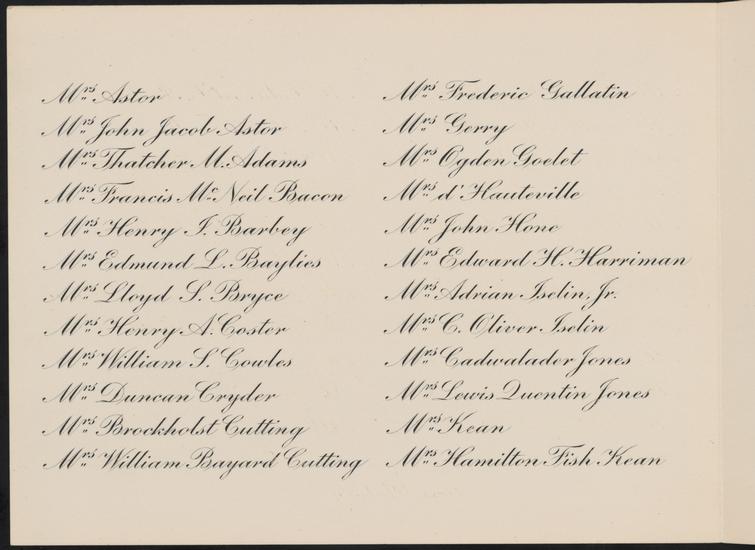 Mrs Astor
Mrs John Jacob Astor
Mrs Thatcher M. Adams
Mrs Francis McNeil Bacon
Mrs Henry I. Barbey
Mrs Edmund L. Baylies
Mrs Lloyd S. Bryce
Mrs Henry A. Coster
Mrs William S. Cowles
Mrs Duncan Cryder
Mrs Brockholst Cutting
Mrs William Bayard Cutting
Mrs Frederic Gallatin
Mrs Gerry
Mrs Ogden Goelet
Mrs d'Hauteville
Mrs John Hone
Mrs Edward H. Harriman
Mrs Adrian Iselin, Jr.
Mrs C. Oliver Iselin
Mrs Cadwalader Jones
Mrs Lewis Quentin Jones
Mrs Kean
Mrs Hamilton Fish Kean